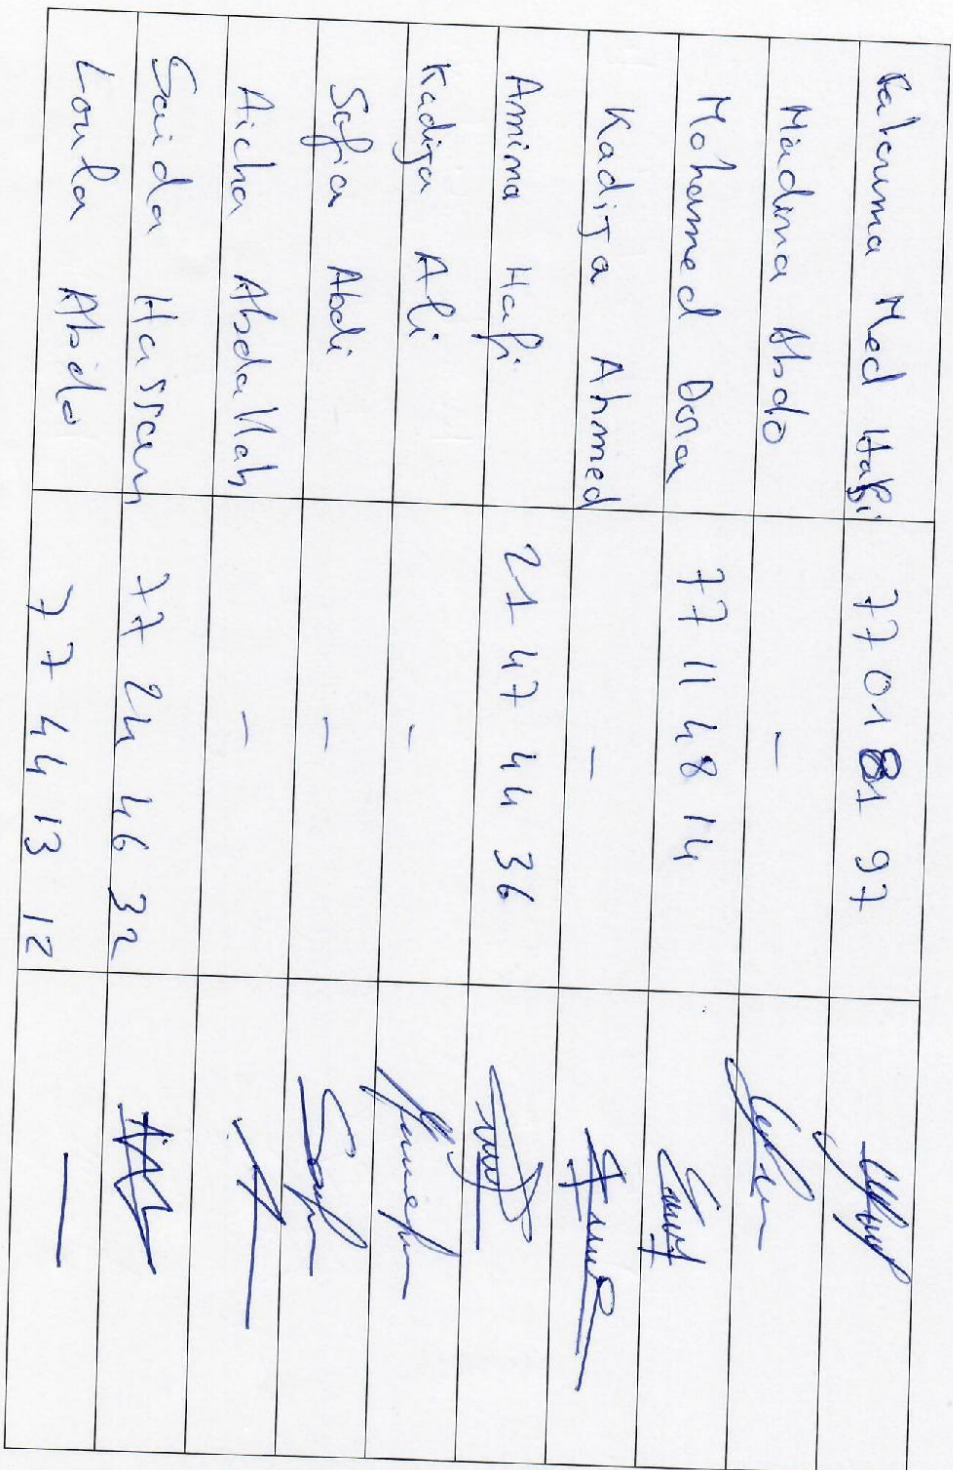 Med Hafi 77 01 81 97
Madina Abdo –
Mohamed Dora 77 11 48 14
Kadija Ahmed –
Amina Hafi 21 47 44 36
Kadija Ali –
Safia Abdi –
Aicha Abdallah –
Saida Hassan 77 24 46 32
Loula Abdo 77 44 13 12 —